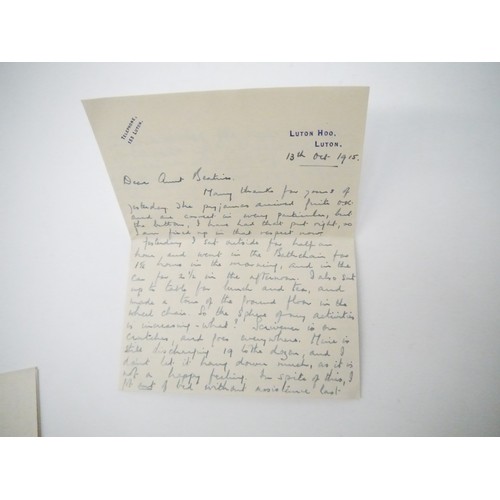 TELEPHONE,
LUTON.
LUTON HOO,
LUTON.
13th Oct 1915.
Dear Aunt Beatrice.
Many thanks for yours of
yesterday. The pyjamas arrived quite O.K.
and are correct in every particular, but
the buttons, I have had that put right, so
I am fixed up in that respect now.
Yesterday I sat outside for half an
hour, and went in the Bathchair for
1½ hours in the morning, and in the
car for 2½ in the afternoon. I also sat
up to table for lunch and tea, and
made a tour of the ground floor in the
wheel chair. So the sphere of my activities
is increasing - what? is on
crutches, and goes everywhere. Mine is
still discharging 19 to the dozen, and I
don't let it hang down much, as it is
not a happy feeling. In spite of this, I
got out of bed without assistance last